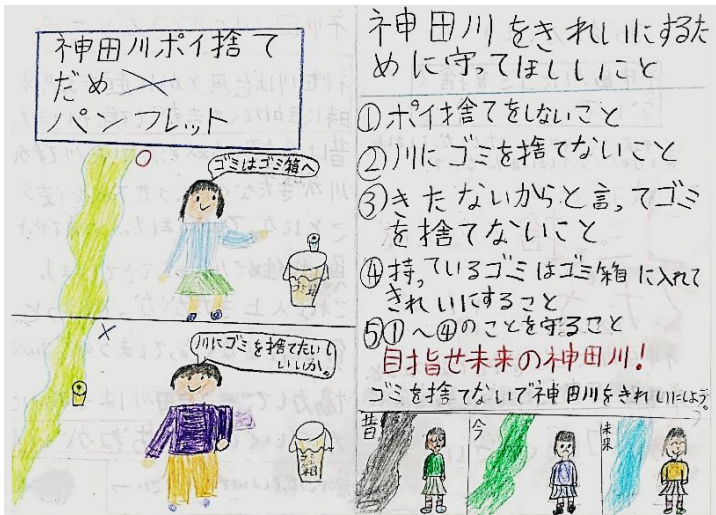 神田川ポイ捨て
だめ✕
パンフレット
○
ゴミはゴミ箱へ
ゴミ箱
×
川にゴミを捨てたいし
いいか。
ゴミ箱
神田川をきれいにするた
めに守ってほしいこと
①ポイ捨てをしないこと
②川にゴミを捨てないこと
③きたないからと言ってゴミ
を捨てないこと
④持っているゴミはゴミ箱に入れて
きれいにすること
⑤①〜④のことを守ること
目指せ未来の神田川!
ゴミを捨てないで神田川をきれいにしよう。
昔
今
未来